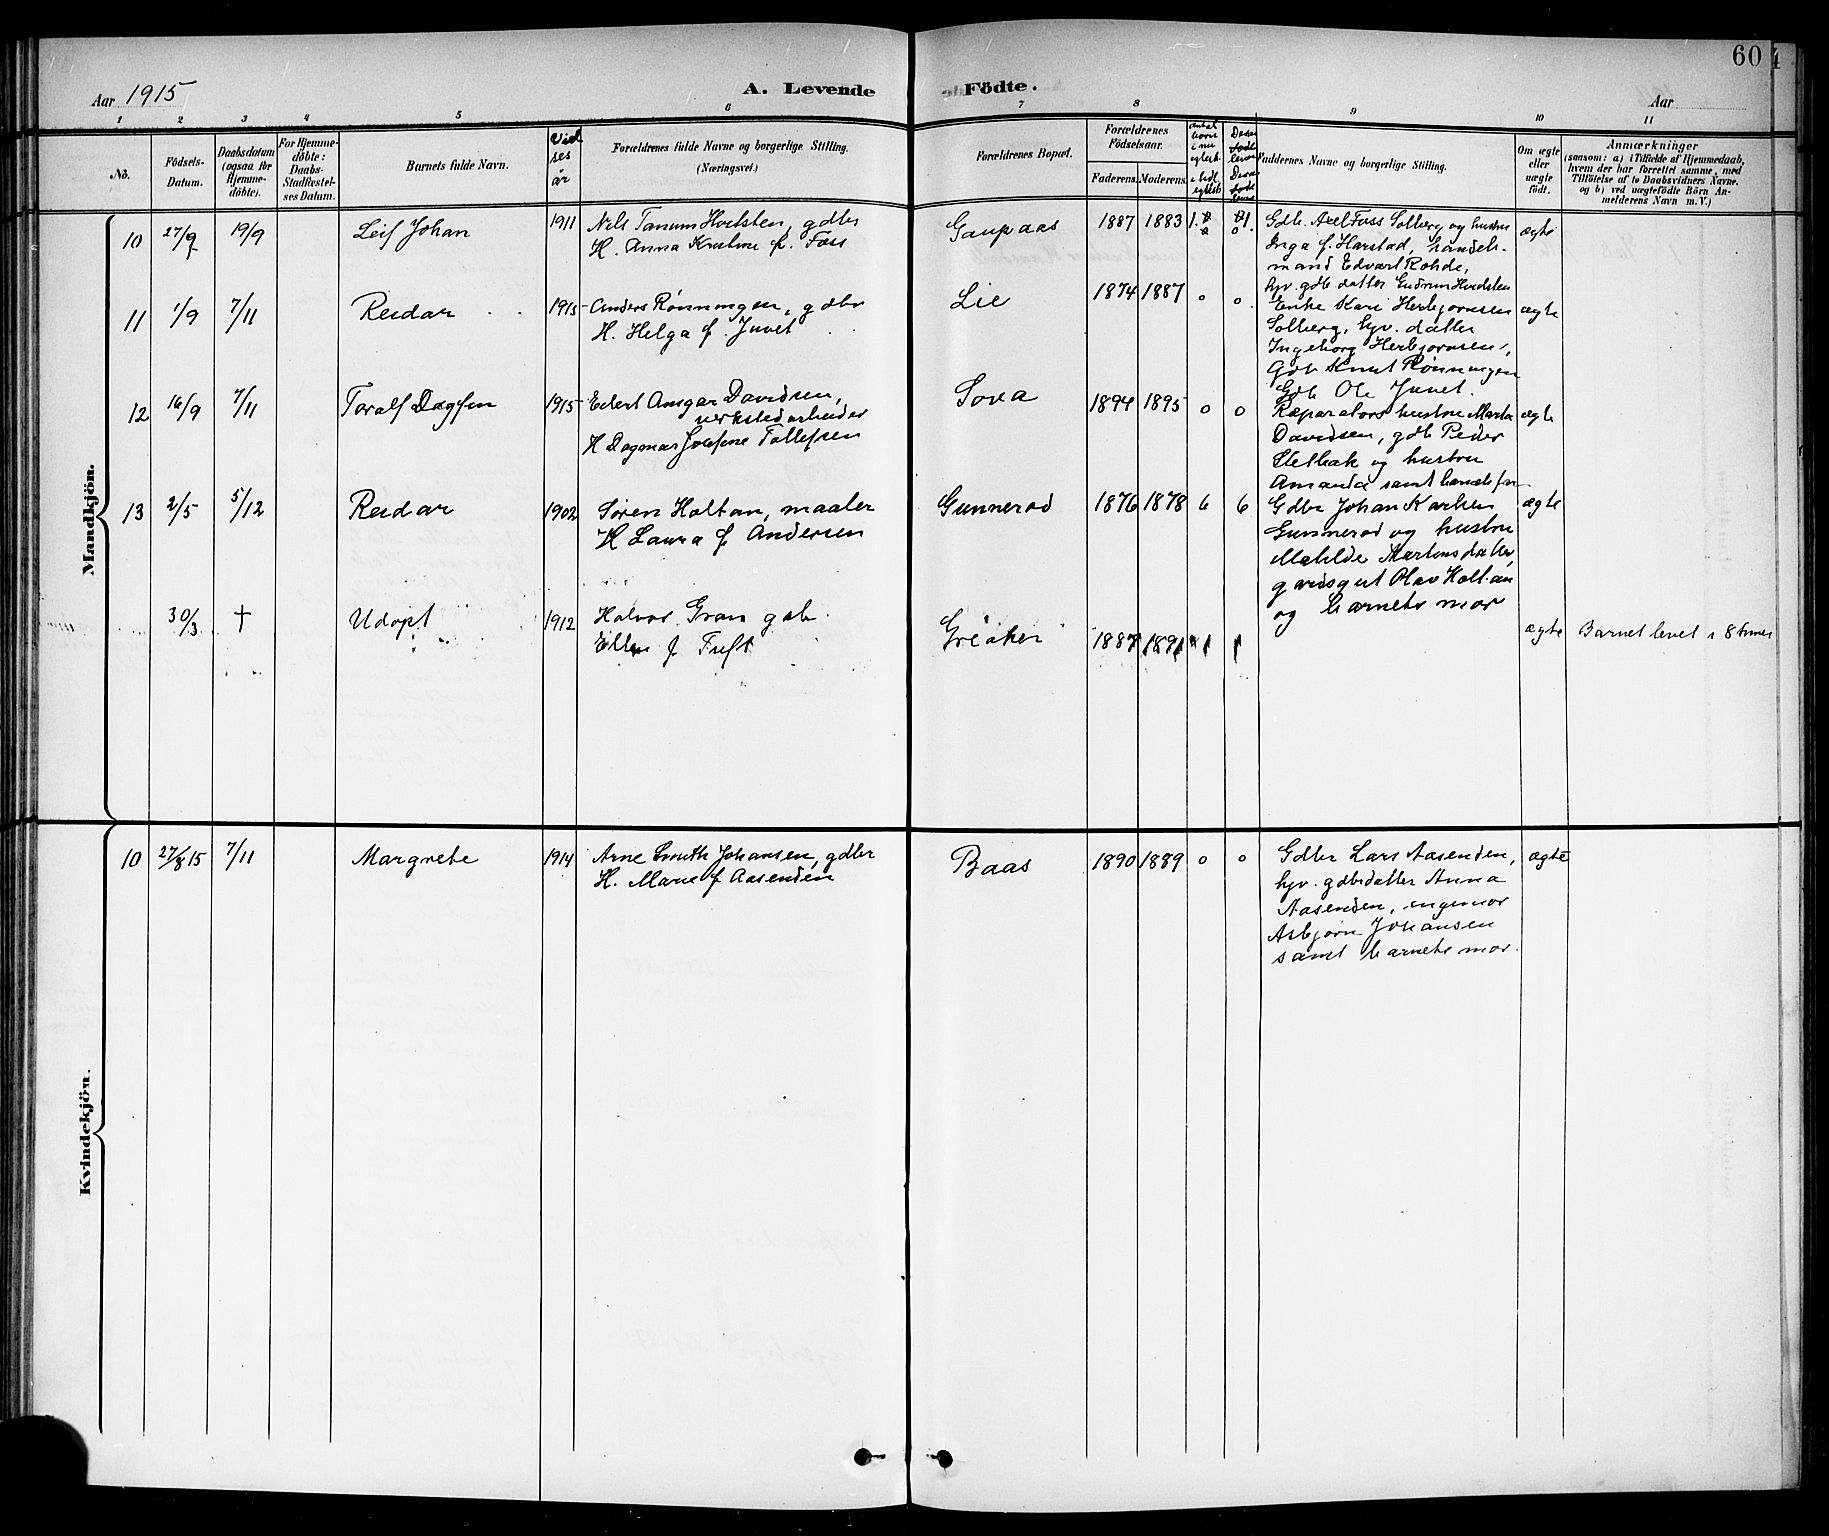 Aar 1915
A. Levende Födte.
60
Aar
1 2 3 4 5 6 7 8 9 10 11
No.
Födsels-Datum.
Daabsdatum (ogsaa for Hjemmedöbte).
For Hjemmedöbte: Daabs-Stadfestelses Datum.
Barnets fulde Navn.
Forældrenes fulde Navne og borgerlige Stilling.
(Næringsvei.)
Forældrenes Bopæl.
Forældrenes Födselsaar.
Faderens. Moderens.
Faddernes Navne og borgerlige Stilling.
Om ægte eller uægte födt.
Anmærkninger
(saasom: a) i Tilfælde af Hjemmedaab,
hvem der har forrettet samme, med
Tilföielse af to Daabsvidners Navne,
og b) ved uægtefödte Börn An-
melderens Navn m. V.)
Mandkjön.
10 27/9 19/9 Leif Johan 1911 Nils Tanum Hvidsten, gdbr
H. Anna Kristine f. Foss
Gaupaas 1887 1883
Gdb. Axel Foss Solberg og hustru
Inga f. Harstad, handels-
mand Edvart Rohde,
hjv. gdb datter Gudrun Hvidsten
ægte
11 1/9 7/11 Reidar 1913 Anders Rønningen, gdbr
H. Helga f. Juvet
Lie 1874 1887 0 0
Enke Kari Herbjørnsen
Solberg, hjv. datter
Ingeborg Herbjørnsen,
Gdb Knut Rønningen
Gdb Ole Juvet.
ægte
12 16/9 7/11 Toralf Dagfin 1915 Edert Ansgar Davidsen,
verkstedarbeider
H Dagmar Josefine Tollefsen
Sova 1894 1895 0 0
Reparatørs hustru Marta
Davidsen, gdb Peder
Stetbak og hustru
Amanda samt barnets far
ægte
13 2/5 5/12 Reidar 1902 Søren Holtan, maaler
H Laura f Andersen
Gunnerød 1876 1878 6 6
Gdbr Johan Karlsen
Gunnerød og hustru
Matilde Martinsdatter,
gardsgut Olav Holtan
og barnets mor
ægte
30/3 † Udøpt 1912 Halvor Gran gdb.
Ellen f Tuft
Greaker 1887 1891 1 1
ægte Barnet levet i 8 timer
Kvindekjön.
10 27/8 15 7/11 Margrete 1914 Arne Smith Johansen, gdbr
H. Marie f Aasenden
Baas 1890 1889 0 0
Gdbr Lars Aasenden,
hjv. gdbsdatter Anna
Aasenden, ingeniør
Asbjørn Johansen
samt barnets mor.
ægte